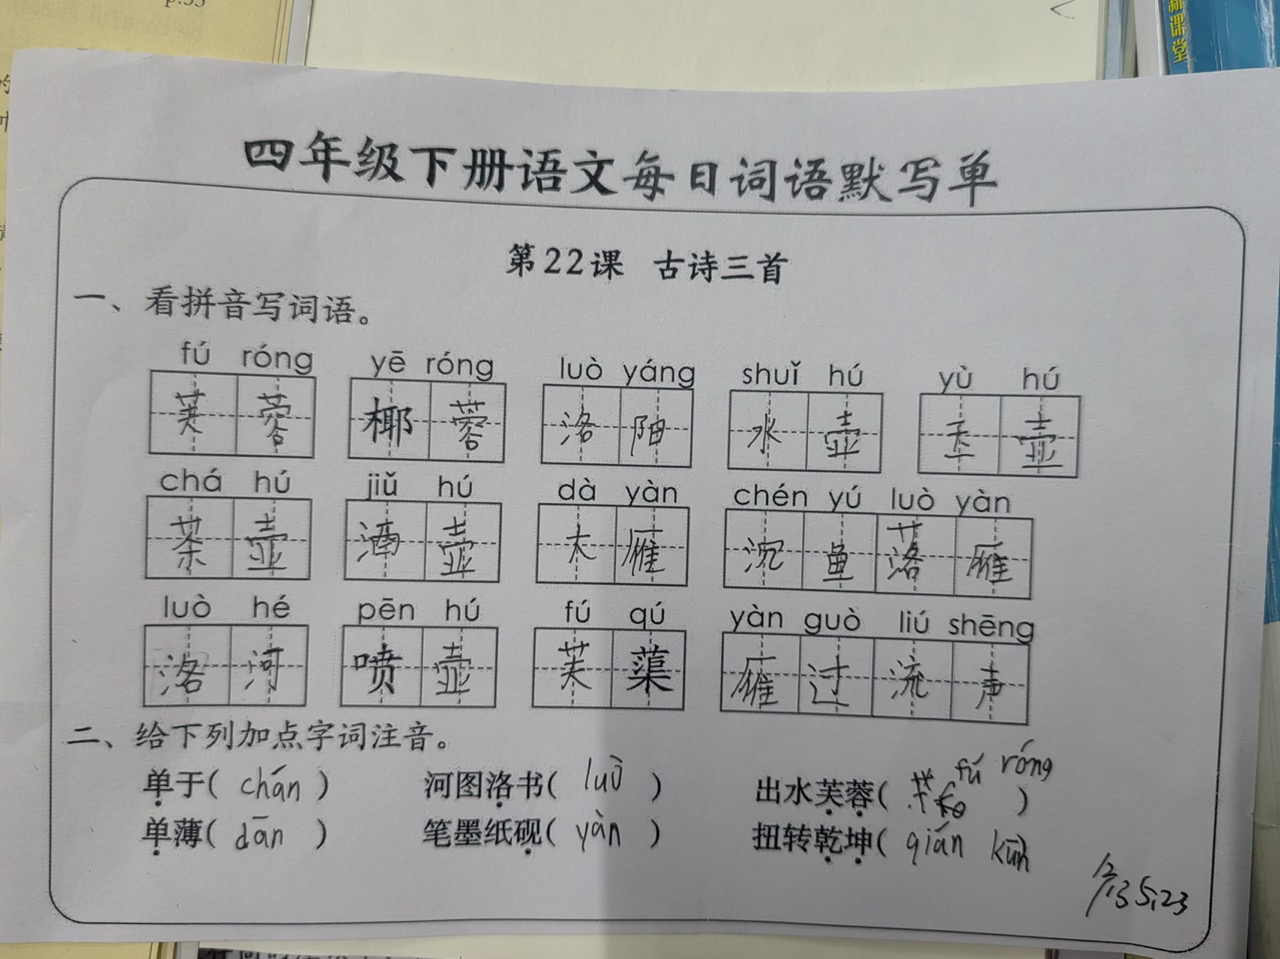 p.33
新课堂
四年级下册语文每日词语默写单
第22课 古诗三首
一、看拼音写词语。
fú róng yē róng luò yáng shuǐ hú yù hú
芙蓉 椰蓉 洛阳 水壶 玉壶
chá hú jiǔ hú dà yàn chén yú luò yàn
茶壶 酒壶 大雁 沉鱼落雁
luò hé pēn hú fú qú yàn guò liú shēng
洛河 喷壶 芙蕖 雁过流声
二、给下列加点字词注音。
单于( chán ) 河图洛书( luò ) 出水芙蓉( fú róng )
单薄( dān ) 笔墨纸砚( yàn ) 扭转乾坤( qián kūn )